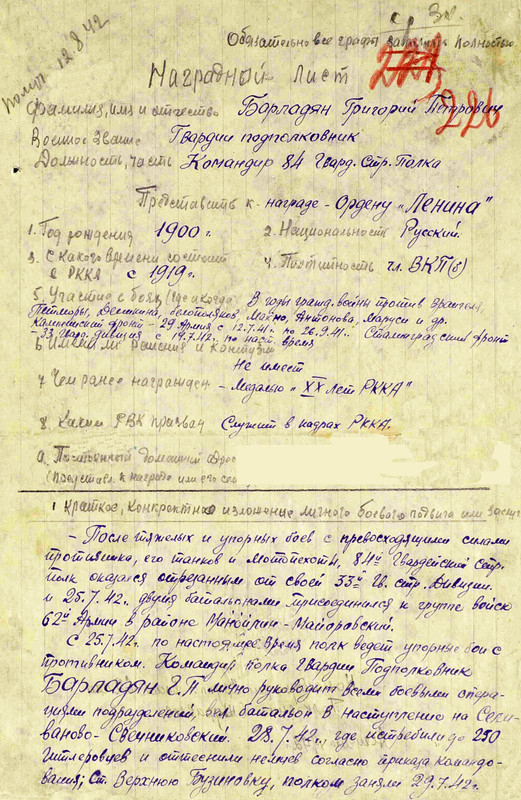 Зк.
Обязательно все графы заполнять полностью.
Получ 12 8 42
Наградной лист
226
Фамилия, имя и отчество Барладян Григорий Петрович
Военное звание Гвардии подполковник
Должность, часть Командир 84 Гвард. Стр. Полка
Представить к награде - Ордену „Ленина"
1. Год рождения 1900 г. 2. Национальность Русский.
3. С какого времени состоит 4. Партийность чл. ВКП(б)
в РККА с 1919 г.
5. Участие в боях (где и когда) В годы гражд. войны против Врангеля,
Петлюры, Деникина, белополяков, Махно, Антонова, Маруси и др.
фронт - 29 Армия с 12.7.41. по 26.9.41. Сталинградский фронт
- 33 Гвард. дивизия с 19.7.42. по наст. время
6. Имеет ли ранения и контузии
Не имеет
7. Чем ранее награжден - Медалью „XX лет РККА"
8. Каким РВК призван Служит в кадрах РККА.
9. Постоянный домашний адрес
(представл. к награде или его сем
1 Краткое, конкретное изложение личного боевого подвига или заслуг
- После тяжелых и упорных боев с превосходящими силами
противника, его танков и мотопехоты, 84й Гвардейский стр.
полк оказался отрезанным от своей 33й Гв. стр. дивизии,
и 25.7.42. двумя батальонами присоединился к группе войск
62й Армии в районе Манойлин-Майоровский.
С 25.7.42. по настоящее время полк ведет упорные бои с
противником. Командир полка Гвардии Подполковник
Барладян Г.П лично руководит всеми боевыми опера-
циями подразделений, вел батальон в наступление на Ски-
ваново-Свечниковский. 28.7.42., где истребили до 250
гитлеровцев и оттеснили немцев согласно приказа командо-
вания; Ст. Верхнюю Бузиновку, полком заняли 29.7.42г.